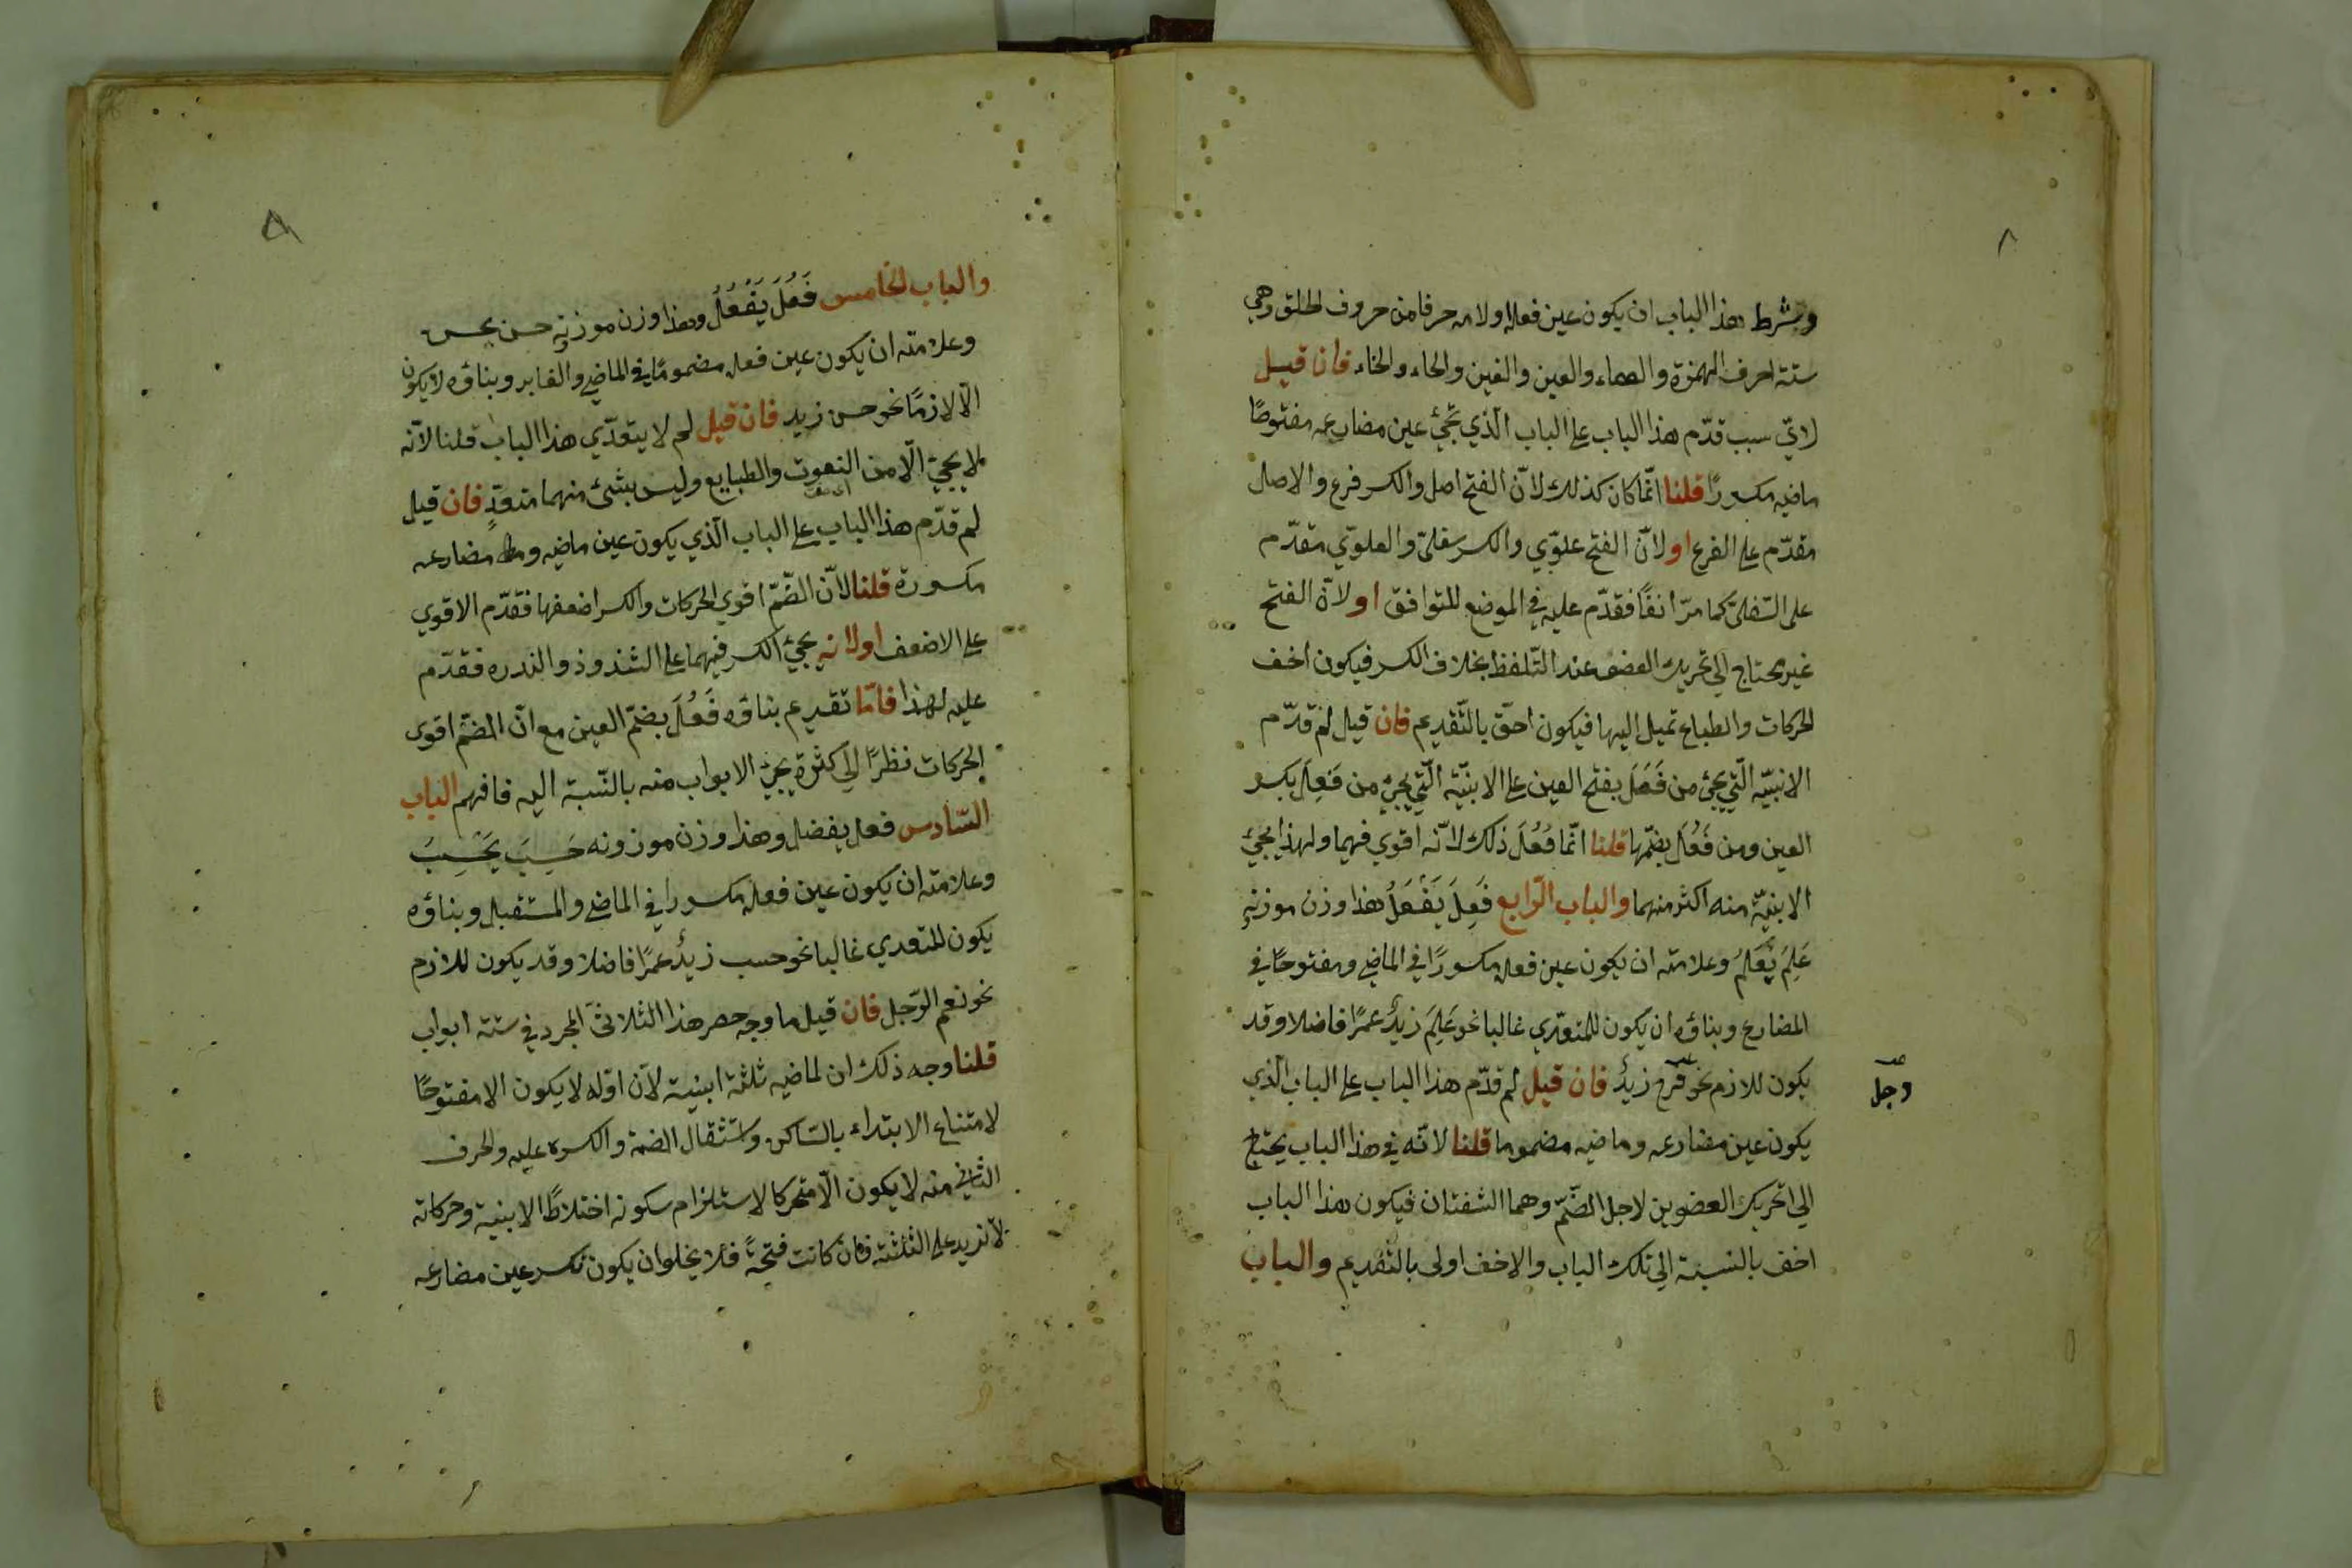 ٨
وشرط هذا الباب ان يكون عين فعله اولامه حرفا من حروف الحلق وهي
ستة احرف الهمزة والهاء والعين والغين والحاء والخاء فان قيل
لايّ سبب قدّم هذا الباب على الباب الّذي تجئ عين مضارعه مفتوحًا
ماضيه مكسورًا قلنا انّما كان كذلك لانّ الفتح اصل والكسر فرع والاصل
مقدّم على الفرع او لانّ الفتح علويّ والكسر سفليّ والعلويّ مقدّم
على السّفلى كما مرّ انفًا فقدّم عليه في الموضع للتوافق او لانّ الفتح
غير محتاج الي تحريك العضو عند التّلفظ بخلاف الكسر فيكون اخف
الحركات والطباع تميل اليها فيكون احقّ بالتّقديم فان قيل لم قدّم
الابنيّه الّتي يجئ من فَعَلَ بفتح العين على الابنيّة الّتي يجئ من فَعِلَ بكسر
العين ومن فَعُلَ بضمّها قلنا انّما فُعُلَ ذلك لانّه اقوي فيهما ولهذا يجئ
الابنيّة منه اكثر منهما والباب الرّابع فَعِلَ يَفْعَلُ هذا وزن موزنه
عَلِمَ يَعْلَمُ وعلامته ان يكون عين فعله مكسورًا في الماضي ومفتوحًا في
المضارع وبناؤه ان يكون للمتعدّي غالبا نحو عَلِمَ زيدٌ عمرًا فاضلا وقد
يكون للازم نحو فرح زيدٌ فان قيل لم قدّم هذا الباب على الباب الّذي
وجل
يكون عين مضارعه وماضيه مضموما قلنا لانّه في هذا الباب يحتاج
الي تحريك العضوين لاجل الضّمّ وهما الشفتان فيكون هذا الباب
اخف بالنسبة الي تلك الباب والاخف اولى بالتقديم والباب
والباب الخامس فَعُلَ يَفْعُلُ وهذا وزن موزنه حسن يحسن
وعلامته ان يكون عين فعله مضمومًا في الماضي والغابر وبناؤه لا يكون
الّا لازمًا نحو حسن زيد فان قيل لم لا يتعدّي هذا الباب قلنا لانّه
لا يجئ الّا من النعوت والطبايع وليس بشئ منهما متعدّ فان قيل
لم قدّم هذا الباب على الباب الّذي يكون عين ماضيه ومضارعه
مكسورة قلنا لانّ الضّمّ اقوي الحركات والكسر اضعفها فقدّم الاقوي
على الاضعف او لانه يجئ الكسر فيهما على الشذوذ والندره فقدّم
عليه لهذا فامّا تقديم بناؤه فَعُلَ بضمّ العين مع انّ الضّمّ اقوى
الحركات نظرًا الي كثرة يجئ الابواب منه بالنّسبة اليه فافهم الباب
السّادس فعل يفعل وهذا وزن موزونه حَسِبَ يَحْسِبُ
وعلامته ان يكون عين فعله مكسورا في الماضي والمستقبل وبناؤه
يكون للمتعدي غالبا نحو حسب زيدٌ عمرًا فاضلا وقد يكون للازم
نحو نعم الرّجل فان قيل ما وجه حصر هذا الثلاثيّ المجرد في ستة ابواب
قلنا وجه ذلك ان لماضيه ثلثة ابنية لانّ اوّله لا يكون الا مفتوحًا
لامتناع الابتداء بالسّاكن واستثقال الضمة والكسره عليه والحرف
الثاني منه لا يكون الّا متحركا لاستلزام سكونه اختلاطًا الابنية وحركاته
لا تزيد على الثلثة فان كانت فتحةً فلا يخلوان يكون تكسر عين مضارعه